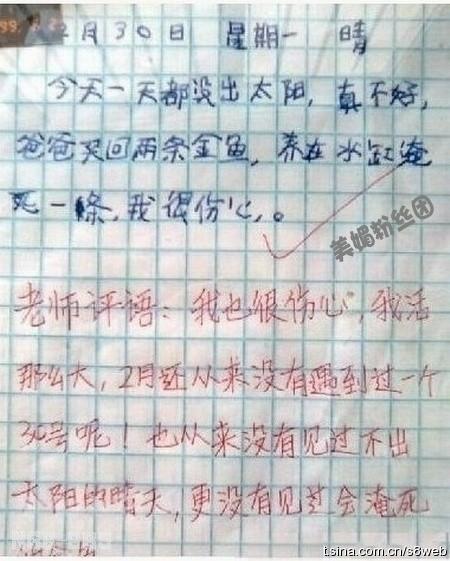 2月30日 星期一 晴
今天一天都没出太阳，真不好，
爸爸买回两条金鱼，养在水缸淹
死一條，我很伤心，。
美媚粉丝团
老师评语：我也很伤心，我活
那么大，2月还从来没有遇到过一个
30号呢！也从来没有见过不出
太阳的晴天，更没有见过会淹死
tsina.com.cn/s8web